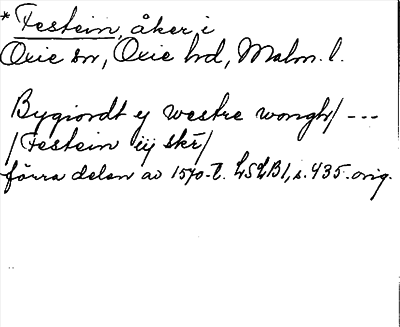 * Festein, åker i
Oxie sn, Oxie hd, Malm. l.
Bygiordt ej westre wongh/ ---
/Festein iij skr/
förra delen av 1570-t. LSLB1, s. 435. orig.